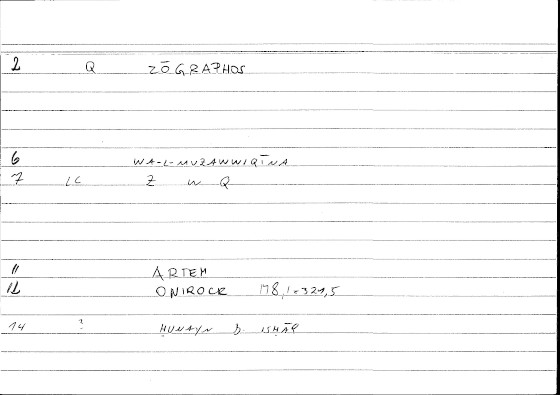 2 Q ZŌGRAPHOS
6 WA-L-MUZAWWIQĪNA
7 IC Z W Q
11 ARTEM
12 ONIROCR 178,1=321,5
14 ? ḤUNAYN B. ISḤĀQ